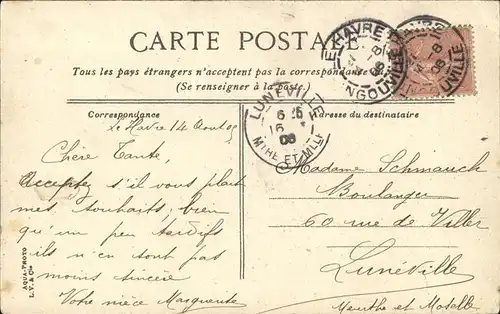 CARTE POSTALE
Tous les pays étrangers n'acceptent pas la correspondance
(Se renseigner à la poste).
LE HAVRE
INGOUVILLE
8
06
LUNEVILLE
6
16
06
MTHE ET MLLE
Correspondance
Adresse du destinataire
Le Havre 14 Aout 06
Chère Tante,
Acceptez s'il vous plait
mes souhaits, bien
qu'un peu tardifs
ils n'en sont pas
moins sincère
Votre nièce Marguerite
Madame Schmauch
Boulanger
60 rue de Viller
Lunéville
Meurthe et Moselle
AQUA-PHOTO
L.V. & Cie